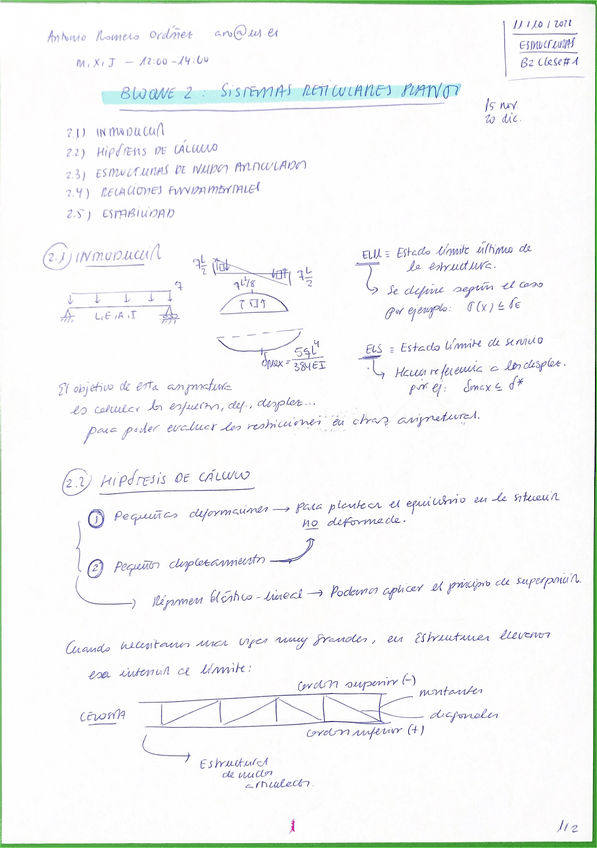 Antonio Romero Ordóñez aro@us.es
M, X, J - 12:00-14:00
11/10/2022
ESTRUCTURAS
B2 Clase #1
BLOQUE 2: SISTEMAS RETICULARES PLANOS
15 nov
20 dic.
2.1) INTRODUCCIÓN
2.2) HIPÓTESIS DE CÁLCULO
2.3) ESTRUCTURAS DE NUDOS ARTICULADOS
2.4) RELACIONES FUNDAMENTALES
2.5) ESTABILIDAD
2.1) INTRODUCCIÓN
q
L, E, A, I
qL/2
qL/2
qL²/8
δmax = 5qL⁴/384EI
ELU ≡ Estado límite último de
la estructura.
↳ Se define según el caso
por ejemplo: σ(x) ≤ σE
ELS ≡ Estado límite de servicio
↳ Hacen referencia a los desplaz.
por ej: δmax ≤ δ*
El objetivo de esta asignatura
es calcular los esfuerzos, def., desplaz...
para poder evaluar las restricciones en otras asignaturas.
2.2) HIPÓTESIS DE CÁLCULO
① Pequeñas deformaciones → para plantear el equilibrio en la situación
no deformada.
② Pequeños desplazamientos
Régimen Elástico-lineal → Podemos aplicar el principio de superposición.
Cuando necesitamos unas vigas muy grandes, en Estructuras llevamos
esa intención al límite:
Cordón superior (-)
montantes
CELOSÍA
diagonales
Cordón inferior (+)
Estructura
de nudos
articulados.
1
1/2